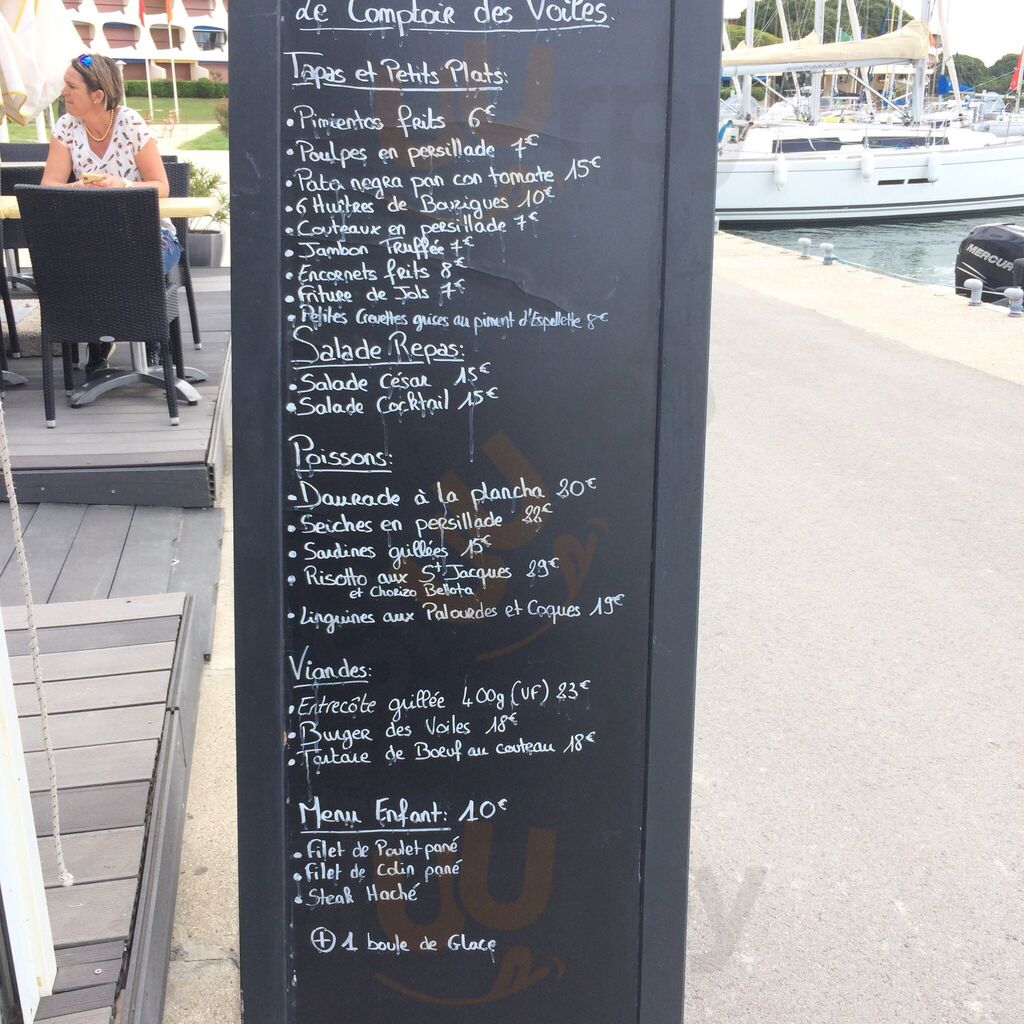 de Comptoir des Voiles.
Tapas et Petits Plats:
• Pimientos frits 6€
• Poulpes en persillade 7€
• Pata negra pan con tomate 15€
• 6 Huîtres de Bouzigues 10€
• Couteaux en persillade 7€
• Jambon Truffée 7€
• Encornets frits 8€
• Friture de Jols 7€
• Petites Crevettes grises au piment d'Espellette 8€
Salade Repas:
• Salade César 15€
• Salade Cocktail 15€
Poissons:
• Daurade à la plancha 20€
• Seiches en persillade 22€
• Sardines grillées 15€
• Risotto aux St Jacques 29€
et Chorizo Bellota
• Linguines aux Palourdes et Coques 19€
Viandes:
• Entrecôte grillée 400g (VF) 23€
• Burger des Voiles 18€
• Tartare de Boeuf au couteau 18€
Menu Enfant: 10€
• Filet de Poulet pané
• Filet de Colin pané
• Steak Haché
+ 1 boule de Glace
MERCURY